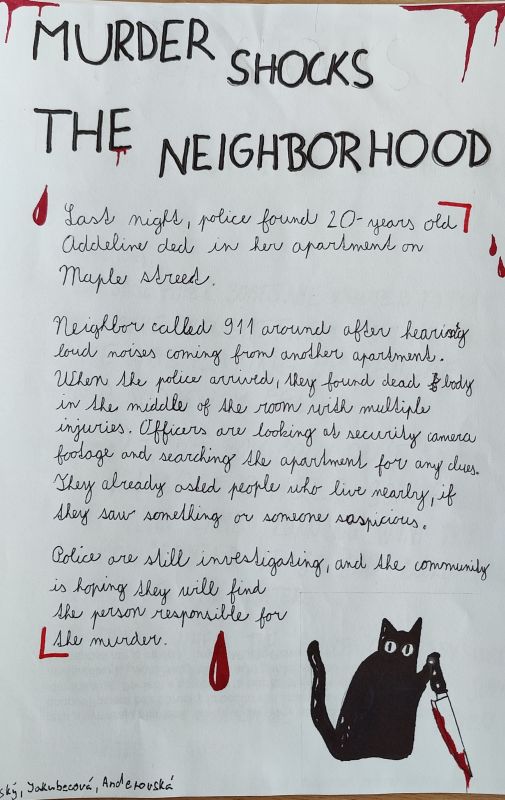 MURDER SHOCKS
THE NEIGHBORHOOD
Last night, police found 20-years old
Addeline ded in her apartment on
Maple street.
Neighbor called 911 around after hearing
loud noises coming from another apartment.
When the police arrived, they found dead body
in the middle of the room with multiple
injuries. Officers are looking at security camera
footage and searching the apartment for any clues.
They already asked people who live nearby, if
they saw something or someone suspicious.
Police are still investigating, and the community
is hoping they will find
the person responsible for
the murder.
ský, Jakubecová, Anderovská